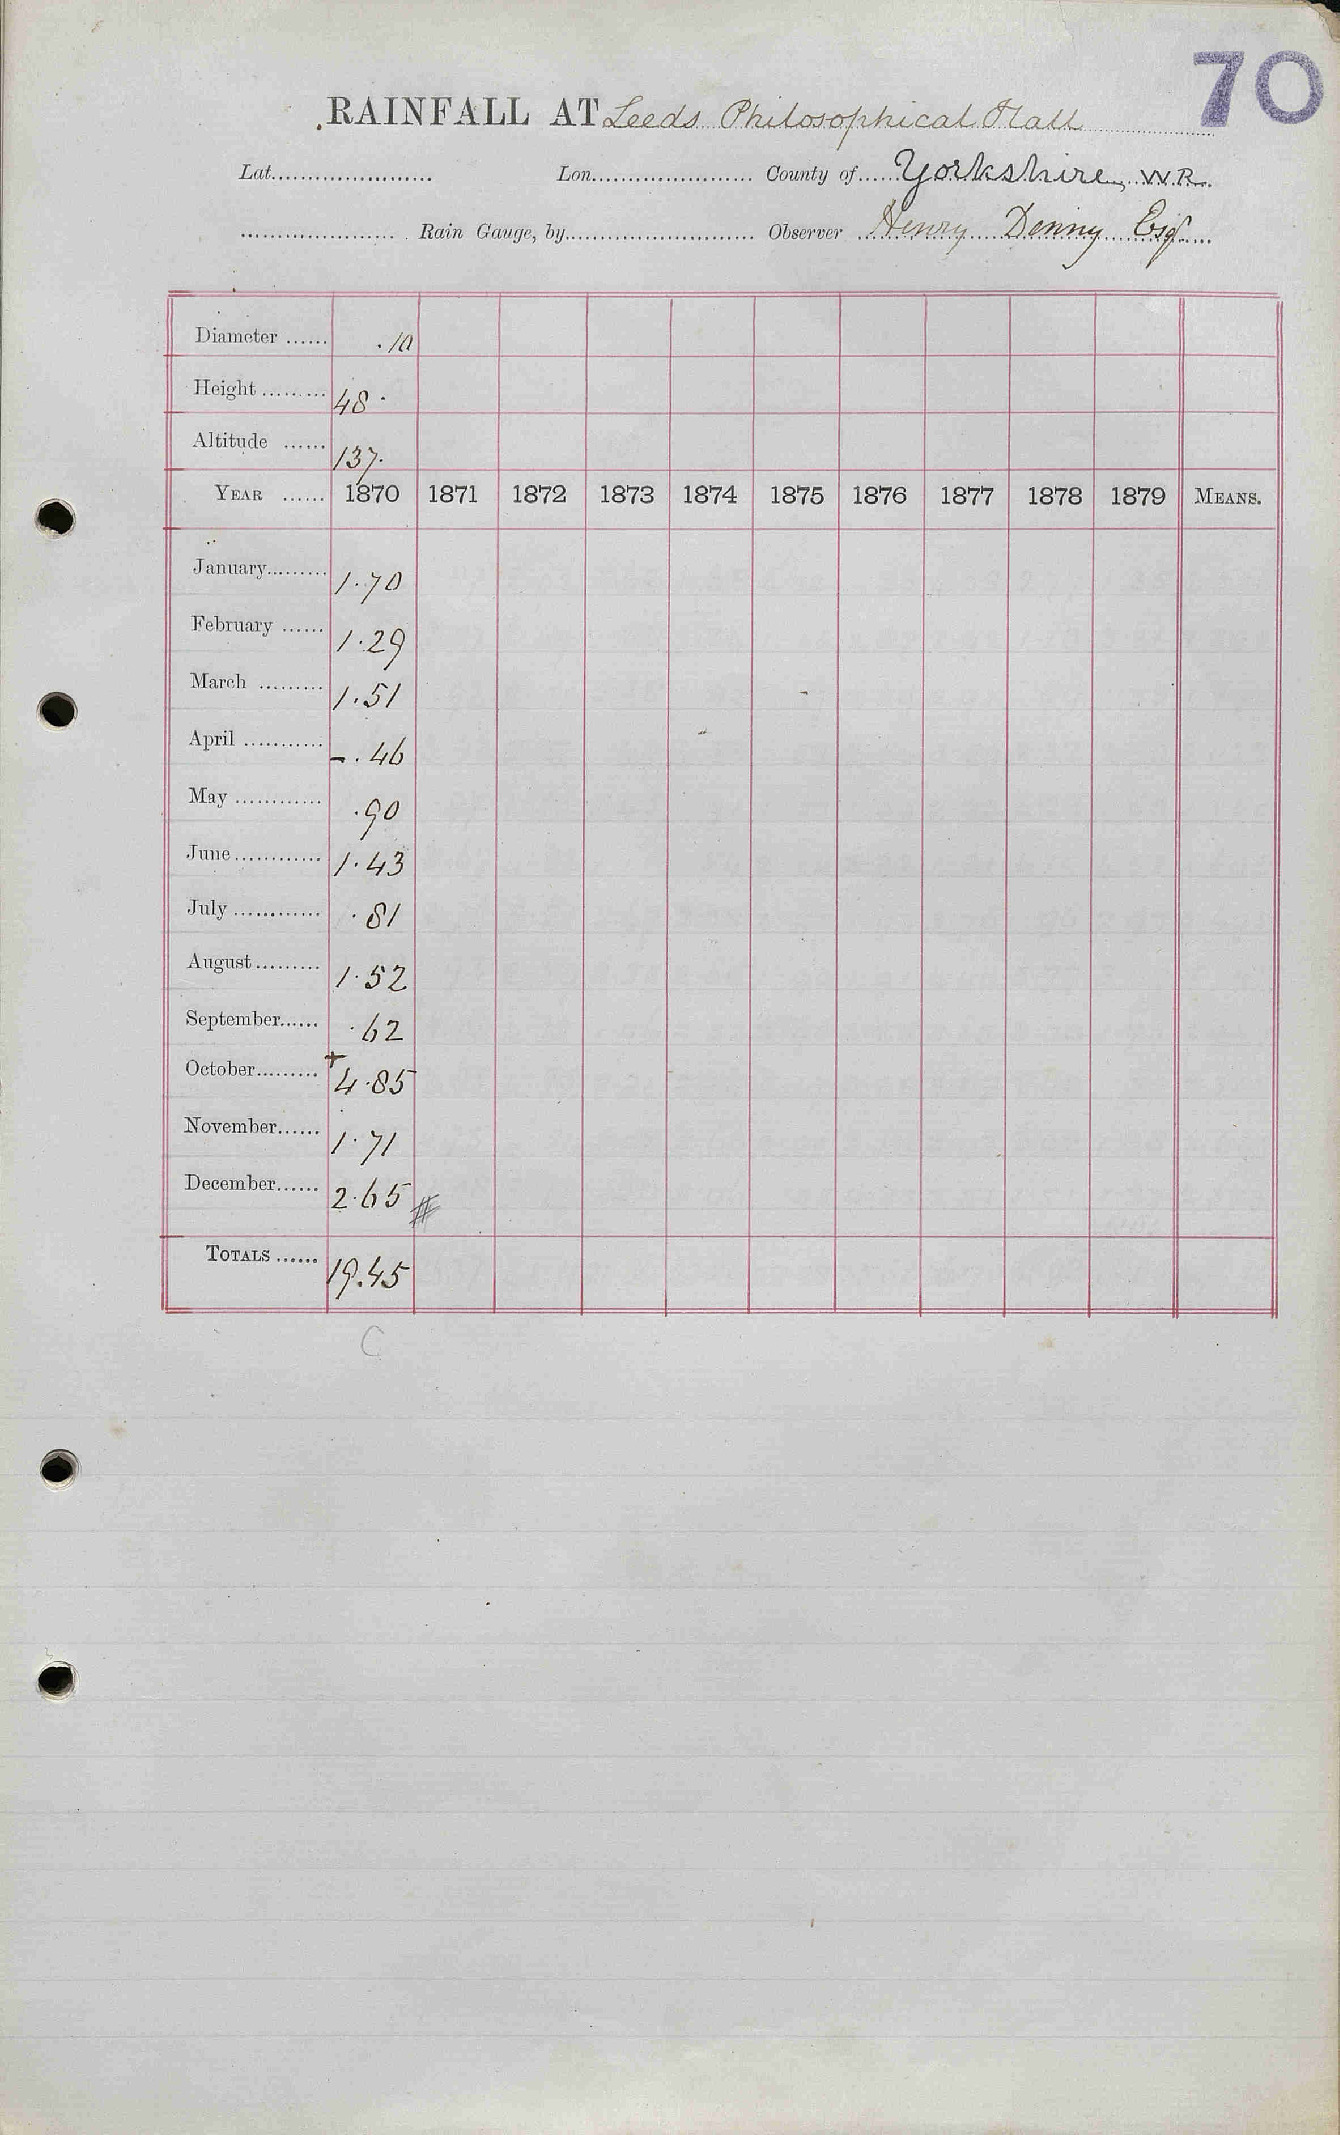 70
RAINFALL AT Leeds Philosophical Hall
Lat...................... Lon...................... County of Yorkshire, W.R.
Rain Gauge, by.......................... Observer Henry Denny Esq.
Diameter ...... .10
Height ......... 48.
Altitude ...... 137.
YEAR ...... 1870 1871 1872 1873 1874 1875 1876 1877 1878 1879 MEANS.
January......... 1.70
February ...... 1.29
March ......... 1.51
April ........... – .46
May ............ .90
June............ 1.43
July ............ .81
August ......... 1.52
September...... .62
October......... + 4.85
November...... 1.71
December...... 2.65 #
TOTALS ...... 19.45
C